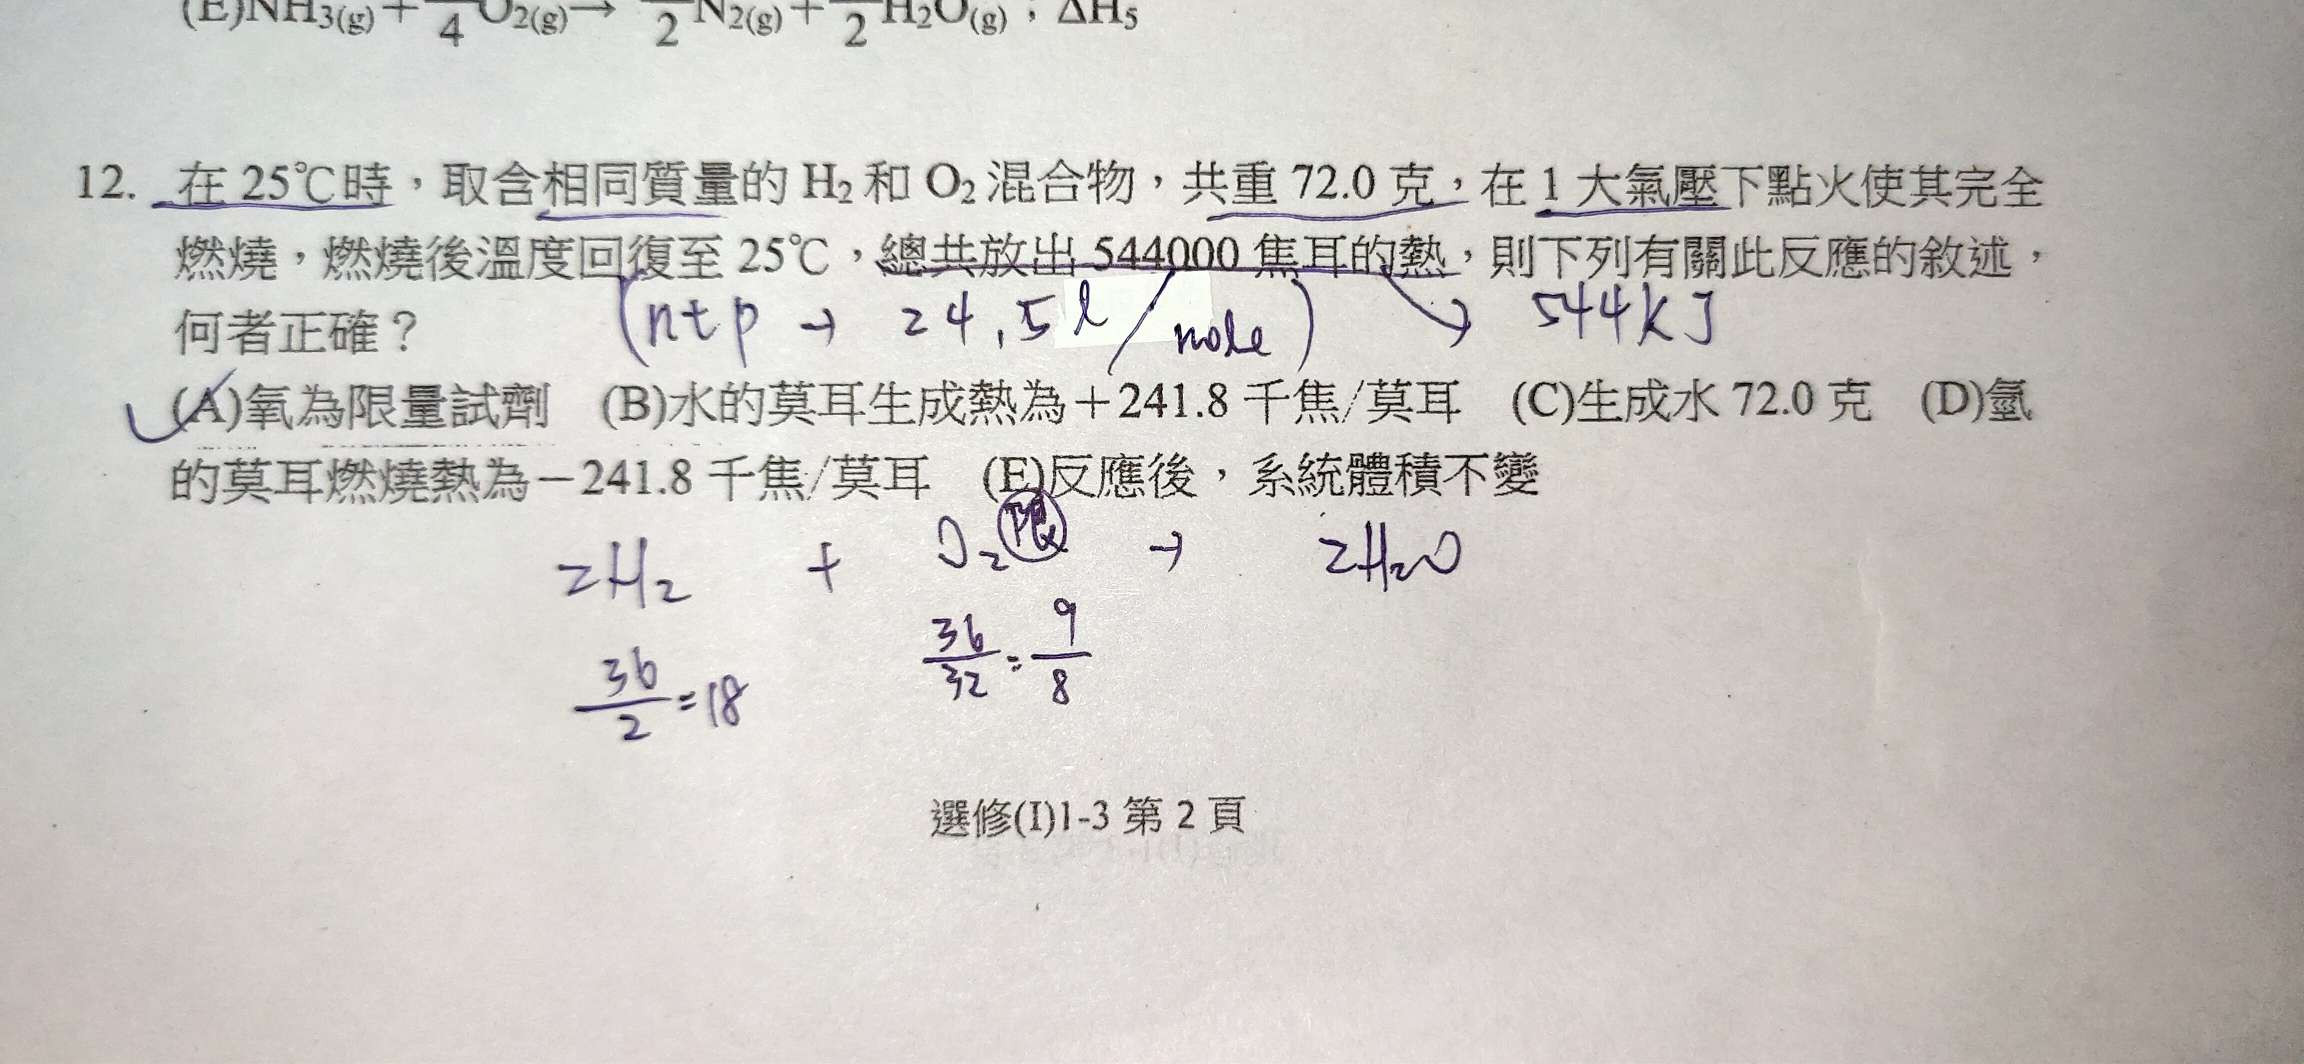 (E)NH₃(g)+ 4 O₂(g)→ 2 N₂(g)+ 2 H₂O(g)；ΔH₅
12. 在 25℃時，取含相同質量的 H₂ 和 O₂ 混合物，共重 72.0 克，在 1 大氣壓下點火使其完全
燃燒，燃燒後溫度回復至 25℃，總共放出 544000 焦耳的熱，則下列有關此反應的敘述，
何者正確？ (ntp → 24.5 l/mole) → 544kJ
(A)氧為限量試劑 (B)水的莫耳生成熱為＋241.8 千焦/莫耳 (C)生成水 72.0 克 (D)氫
的莫耳燃燒熱為－241.8 千焦/莫耳 (E)反應後，系統體積不變
2H₂ + O₂ 限 → 2H₂O
36/2 = 18 36/32 = 9/8
選修(I)1-3 第 2 頁